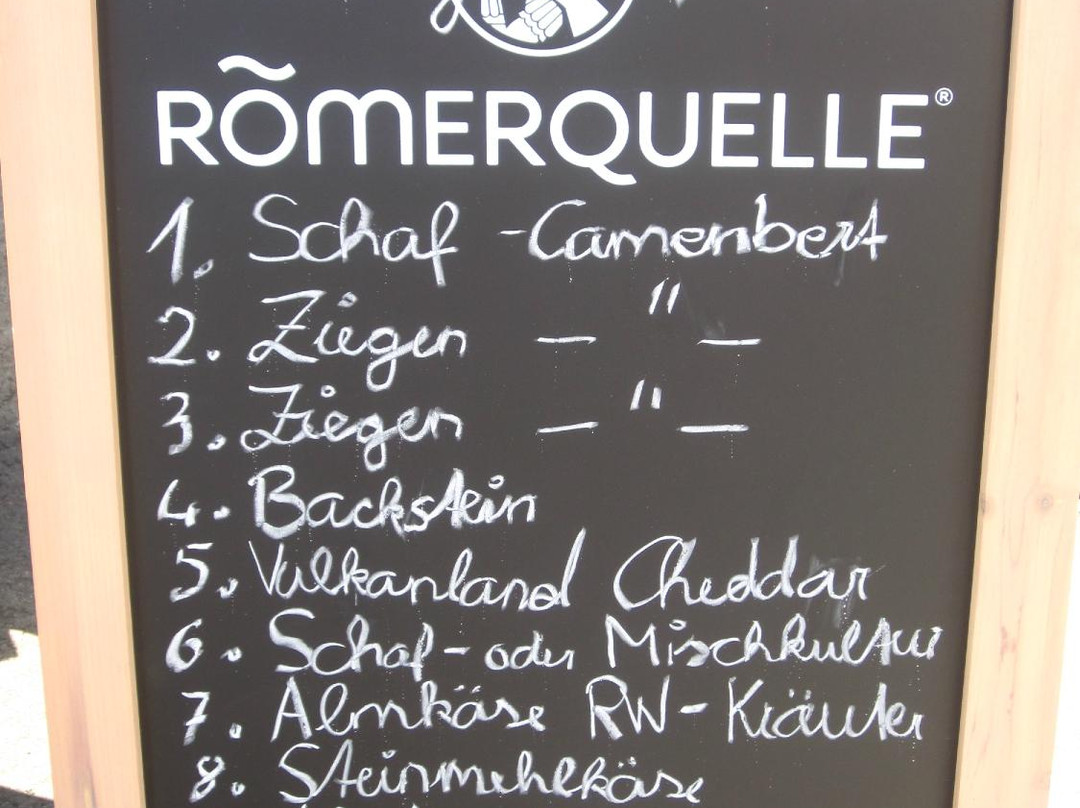 RÖMERQUELLE®
1. Schaf - Camenbert
2. Ziegen — " —
3. Ziegen — " —
4. Backstein
5. Vulkanland Cheddar
6. Schaf - oder Mischkultur
7. Almkäse RW - Kräuter
8. Steinmehlkäse